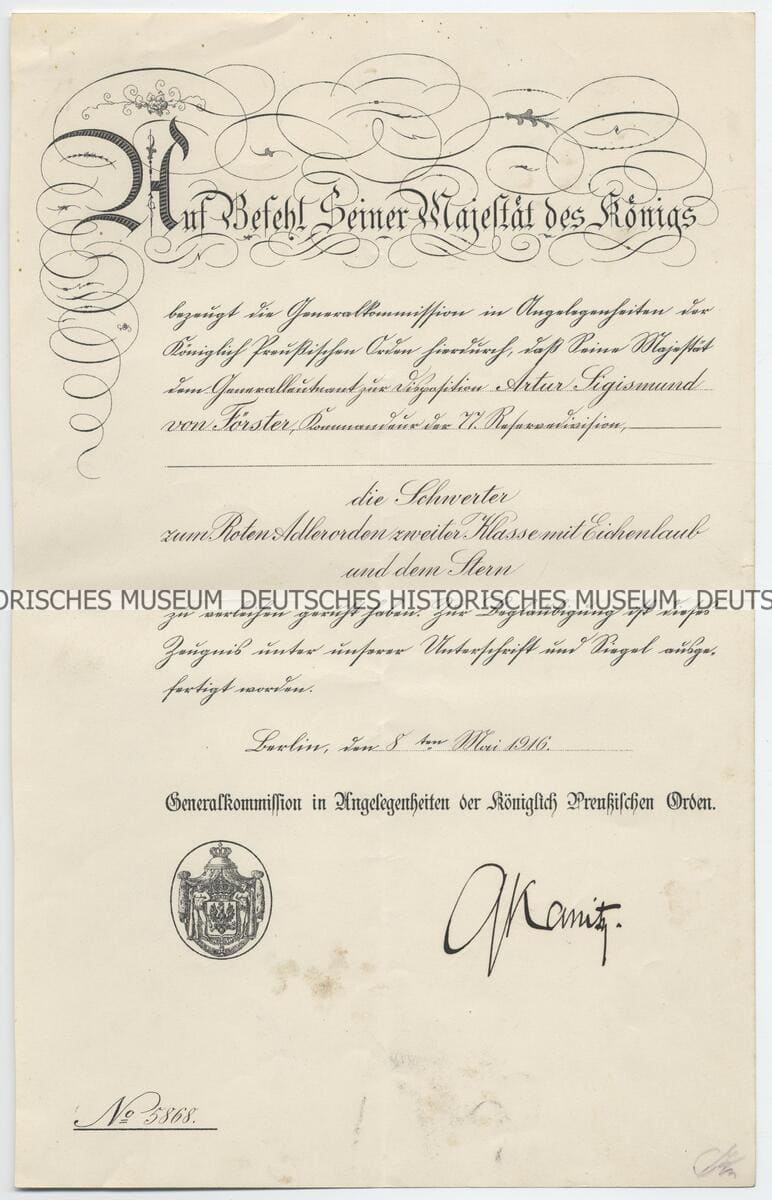 Auf Befehl Seiner Majestät des Königs
bezeugt die Generalkommission in Angelegenheiten der
Königlich Preußischen Orden hierdurch, daß Seine Majestät
dem Generalleutnant zur Disposition Artur Sigismund
von Förster, Kommandeur der 77. Reservedivision,
die Schwerter
zum Roten Adlerorden zweiter Klasse mit Eichenlaub
und dem Stern
ORISCHES MUSEUM DEUTSCHES HISTORISCHES MUSEUM DEUTS
zu verleihen geruht haben. Zur Beglaubigung ist dieses
Zeugnis unter unserer Unterschrift und Siegel ausge-
fertigt worden.
Berlin, den 8ten Mai 1916.
Generalkommission in Angelegenheiten der Königlich Preußischen Orden.
GKanitz.
No 5868.